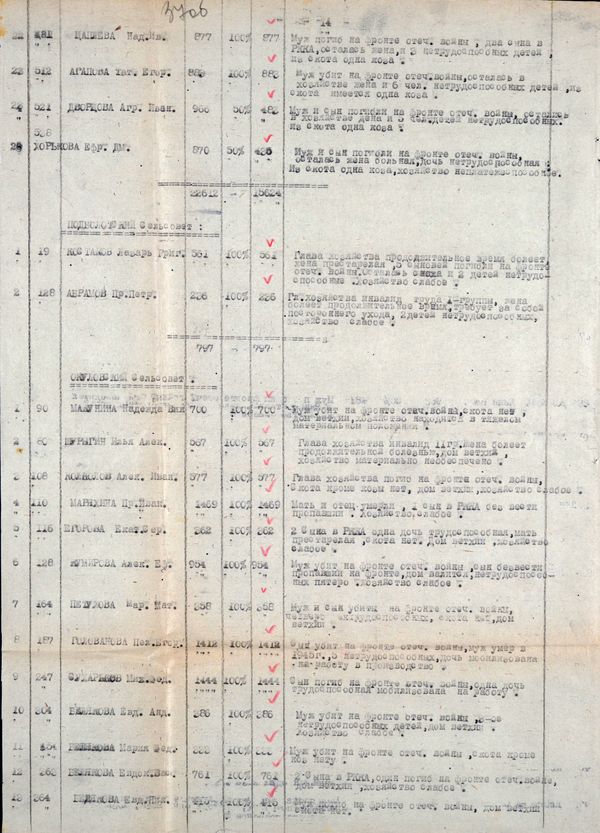 - 14 -
ЦАПЛЕВА Над.Ив. 877 100% 877 Муж погиб на фронте отеч. войны, два сына в
РККА, осталась жена, и 3 нетрудоспособных детей,
из скота одна коза.
23 512 АРАПОВА Тат. Егор. 883 100% 883 Муж убит на фронте отеч.войны, осталась в
хозяйстве жена и 6 чел. нетрудоспособных детей, из
скота имеется одна коза.
24 521 ДВОРЦОВА Агр. Иван. 966 50% 483 Муж и сын погибли на фронте отеч. войны, остались
в хозяйстве жена и 3 чел.детей нетрудоспособных.
из скота одна коза.
528
25 ХОРЬКОВА Ефр. Дм. 870 50% 435 Муж и сын погибли на фронте отеч. войны,
осталась жена больная, дочь нетрудоспособная.
Из скота одна коза, хозяйство неплатежеспособное.
22612 - 15624
ПОДБОЛОТСКИЙ Сельсовет:
1 19 КОСТАКОВ Лазарь Григ. 561 100% 561 Глава хозяйства продолжительное время болеет,
жена престарелая, 5 сыновей погибли на фронте
отеч. войны. Осталась сноха и 2 детей нетрудо-
способные. Хозяйство слабое.
2 128 АБРАМОВ Пр.Петр. 236 100% 236 Гл.хозяйства инвалид труда 1-группы, жена
болеет продолжительное время, требует за собой
постороннего ухода, 2 детей нетрудоспособных,
хозяйство слабое.
797 - 797
ОКУЛОВСКИЙ Сельсовет.
1 90 МАКУНИНА Надежда 700 100% 700 Муж убит на фронте отеч.войны, скота нет,
дом ветхий, хозяйство находится в тяжелом
материальном положении.
2 80 ШУРЫГИН Илья Алек. 567 100% 567 Глава хозяйства инвалид 11гр.жена болеет
продолжительной болезнью, дом ветхий,
хозяйство материально необеспечено.
3 108 Алек. Иван. 577 100% 577 Глава хозяйства погиб на фронте отеч. войны,
Скота кроме козы нет, дом ветхий, хозяйство слабое.
4 110 МАРИХИНА Пр.Иван. 1469 100% 1469 Мать и отец умерли, 1 сын в РККА без вести
пропавший. Хозяйство, слабое.
5 116 ЕГОРОВА Екат.Сер. 362 100% 362 2 Сына в РККА одна дочь трудоспособная, мать
престарелая, скота нет. Дом ветхий, хозяйство
слабое.
6 128 Алек. 954 100% 954 Муж убит на фронте отеч. войны, сын безвести
пропавший на фронте, дом валится, нетрудоспособ-
ных пятеро. Хозяйство слабое.
7 164 ПЕТУХОВА Мар. Мат. 358 100% 358 Муж и сын убиты на фронте отеч. войны,
четверо нетрудоспособных, скота нет, дом
ветхий.
8 187 ГОЛОВАНОВА Пел.Егор. 1412 100% 1412 Сын убит на фронте отеч. войны, муж умер в
1945г., 6 нетрудоспособных, дочь мобилизована
на работу в производство.
9 247 Мих.Фед. 1444 100% 1444 Сын погиб на фронте отеч. войны, одна дочь
трудоспособная мобилизована на работу.
10 304 БЕЛЯКОВА Евд. Анд. 386 100% 386 Муж убит на фронте отеч. войны,
нетрудоспособных детей, дом ветхий.
Хозяйство слабое.
11 БЕЛЯКОВА Мария Фед. 333 100% 333 Муж убит на фронте отеч. войны, скота кроме
коз нету.
12 363 БЕЛЯКОВА Евдок.Вас. 761 100% 761 2 Сына в РККА, один погиб на фронте отеч.войне,
дом ветхий, хозяйство слабое.
13 364 БЕЛЯКОВА Евд. 100% Муж погиб на фронте отеч. войны, дом ветхий